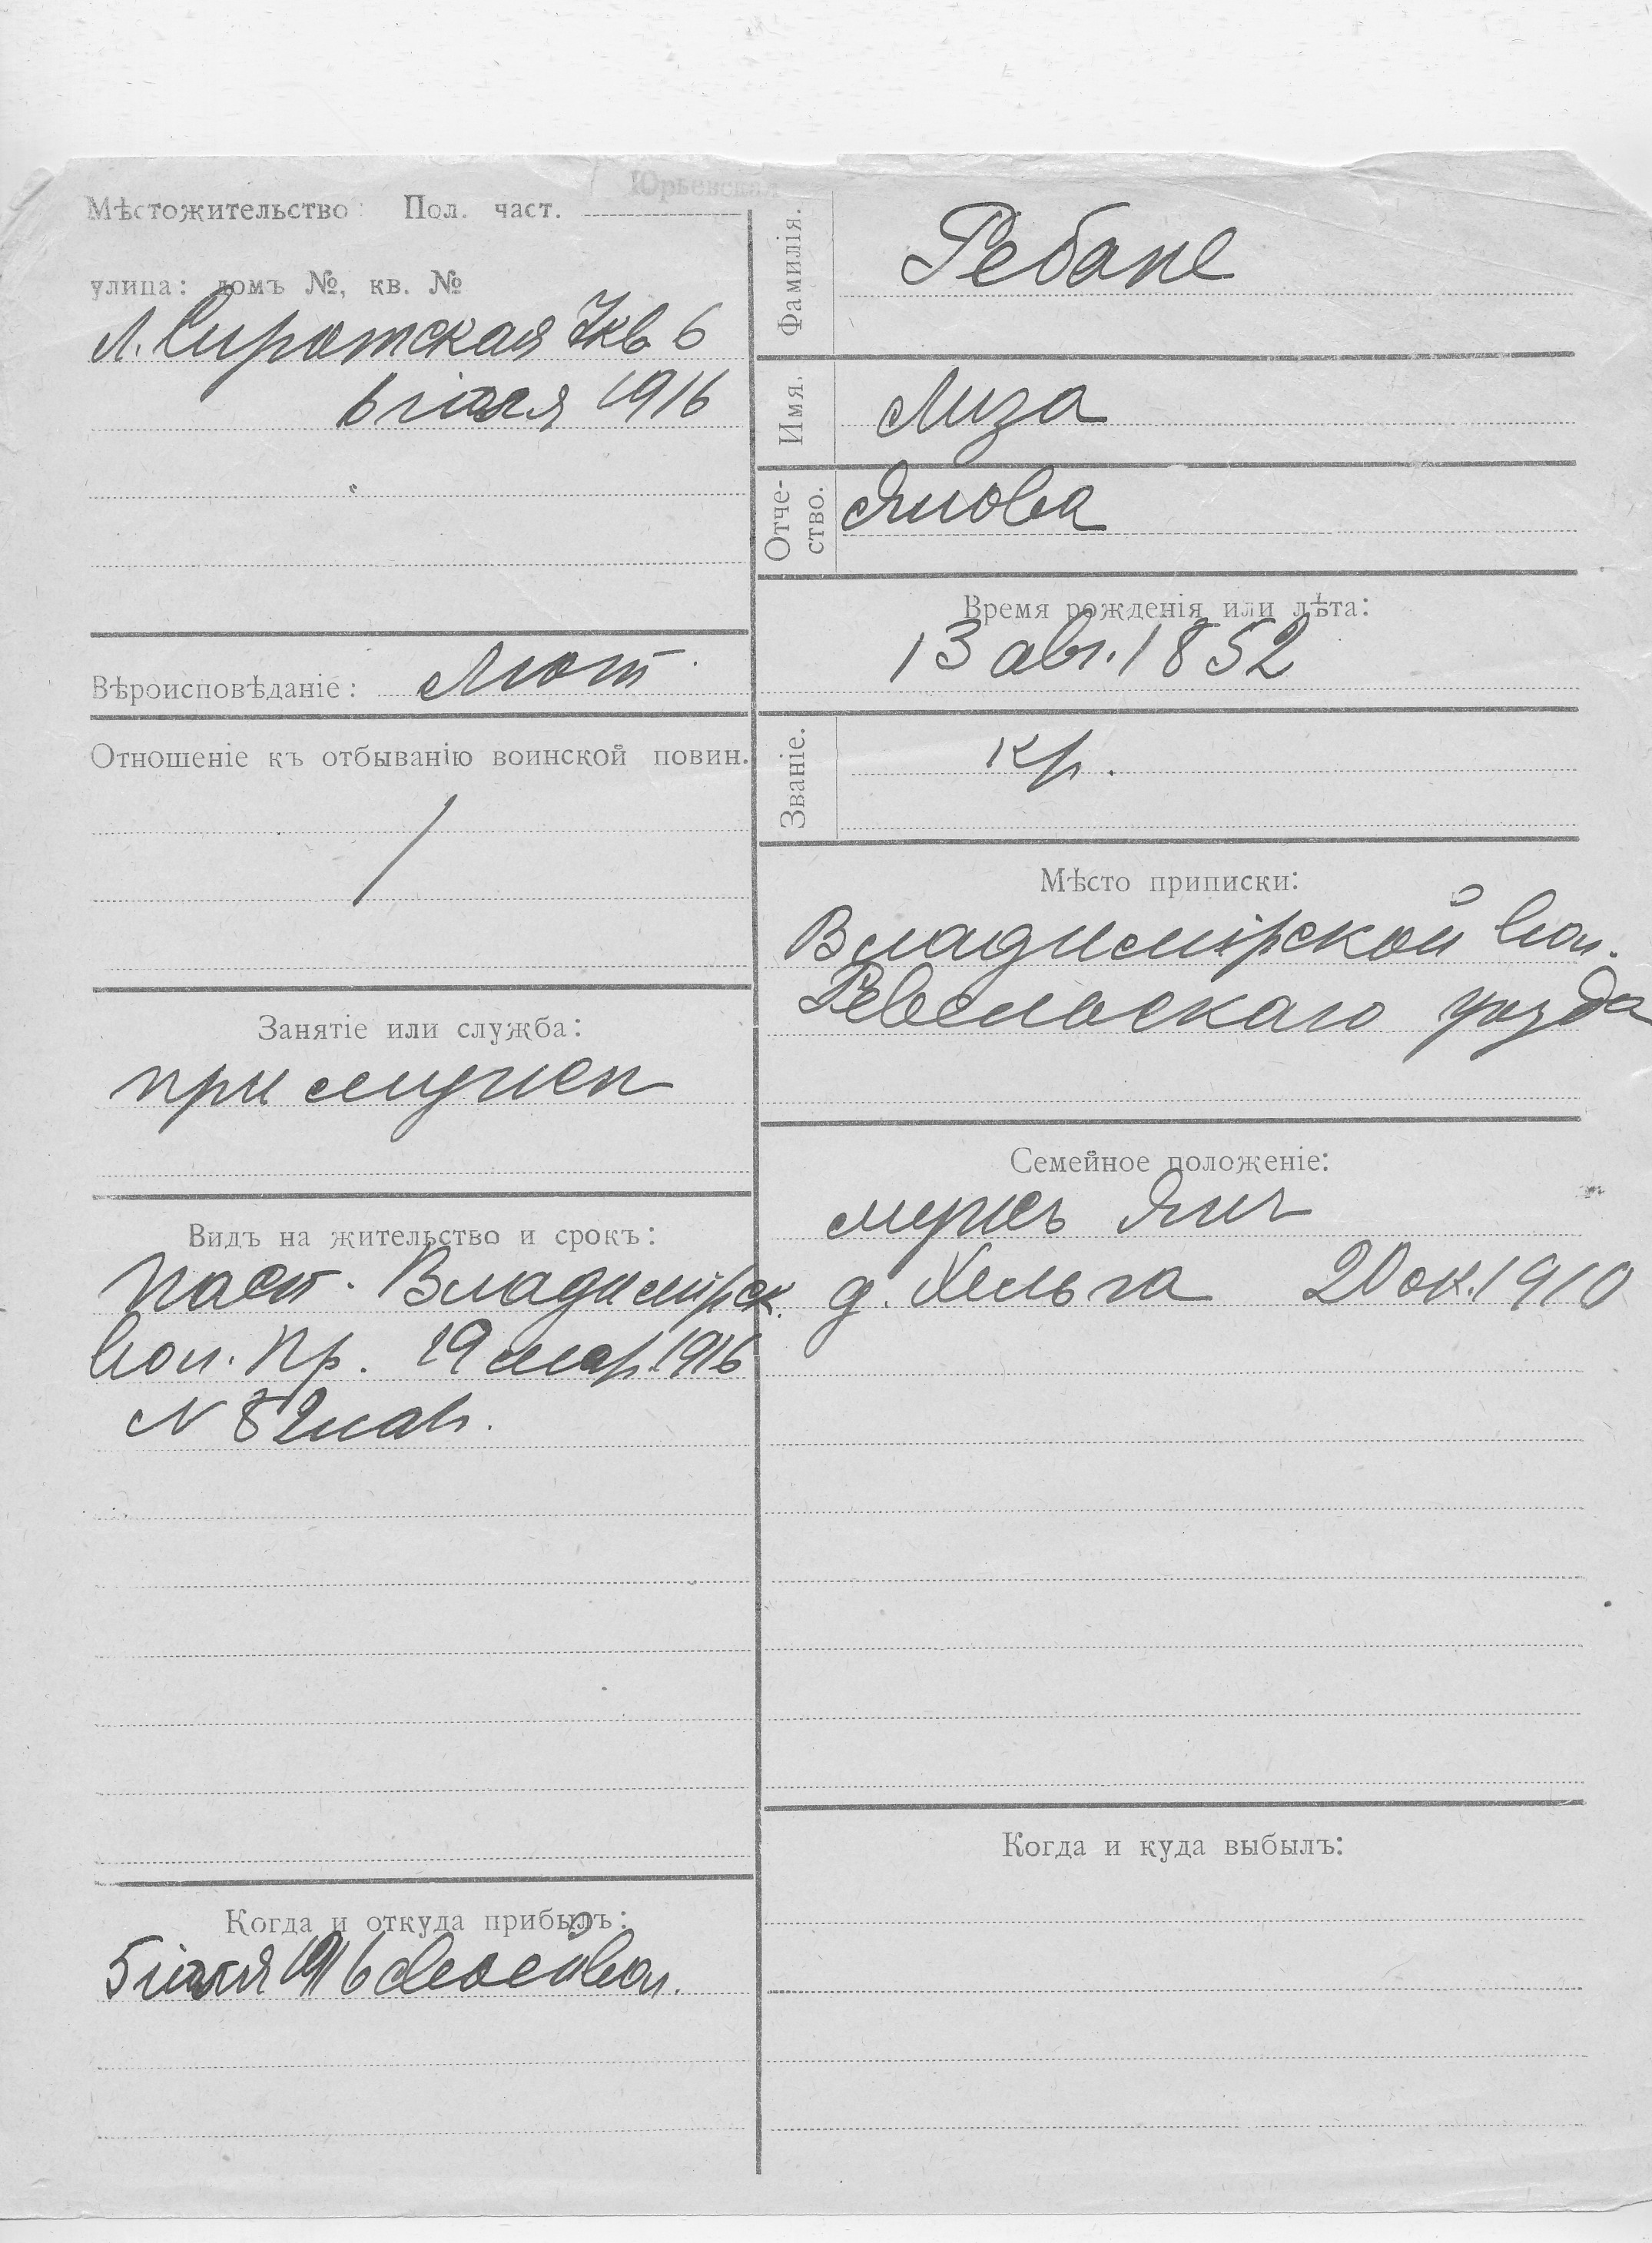 Юрьевская
Мѣстожительство: Пол. част.
улица: домъ №, кв. №
Л. Сиротская 7 кв 6
6 іюля 1916
Вѣроисповѣданіе: Лют.
Отношеніе къ отбыванію воинской повин.
/
Занятіе или служба:
при мужѣ
Видъ на жительство и срокъ:
Пасп. Владимірск.
вол. пр. 19 мар. 1916
N 82
Когда и откуда прибылъ:
5 іюля 1916 вол.
Фамилія.
Ребане
Имя.
Лиза
Отче-
ство.
Янова
Время рожденія или лѣта:
13 авг. 1852
Званіе.
кр.
Мѣсто приписки:
Владимірской вол.
Ревельскаго уѣзда
Семейное положеніе:
мужъ Янъ
д. Хельга 20 ок. 1910
Когда и куда выбылъ: